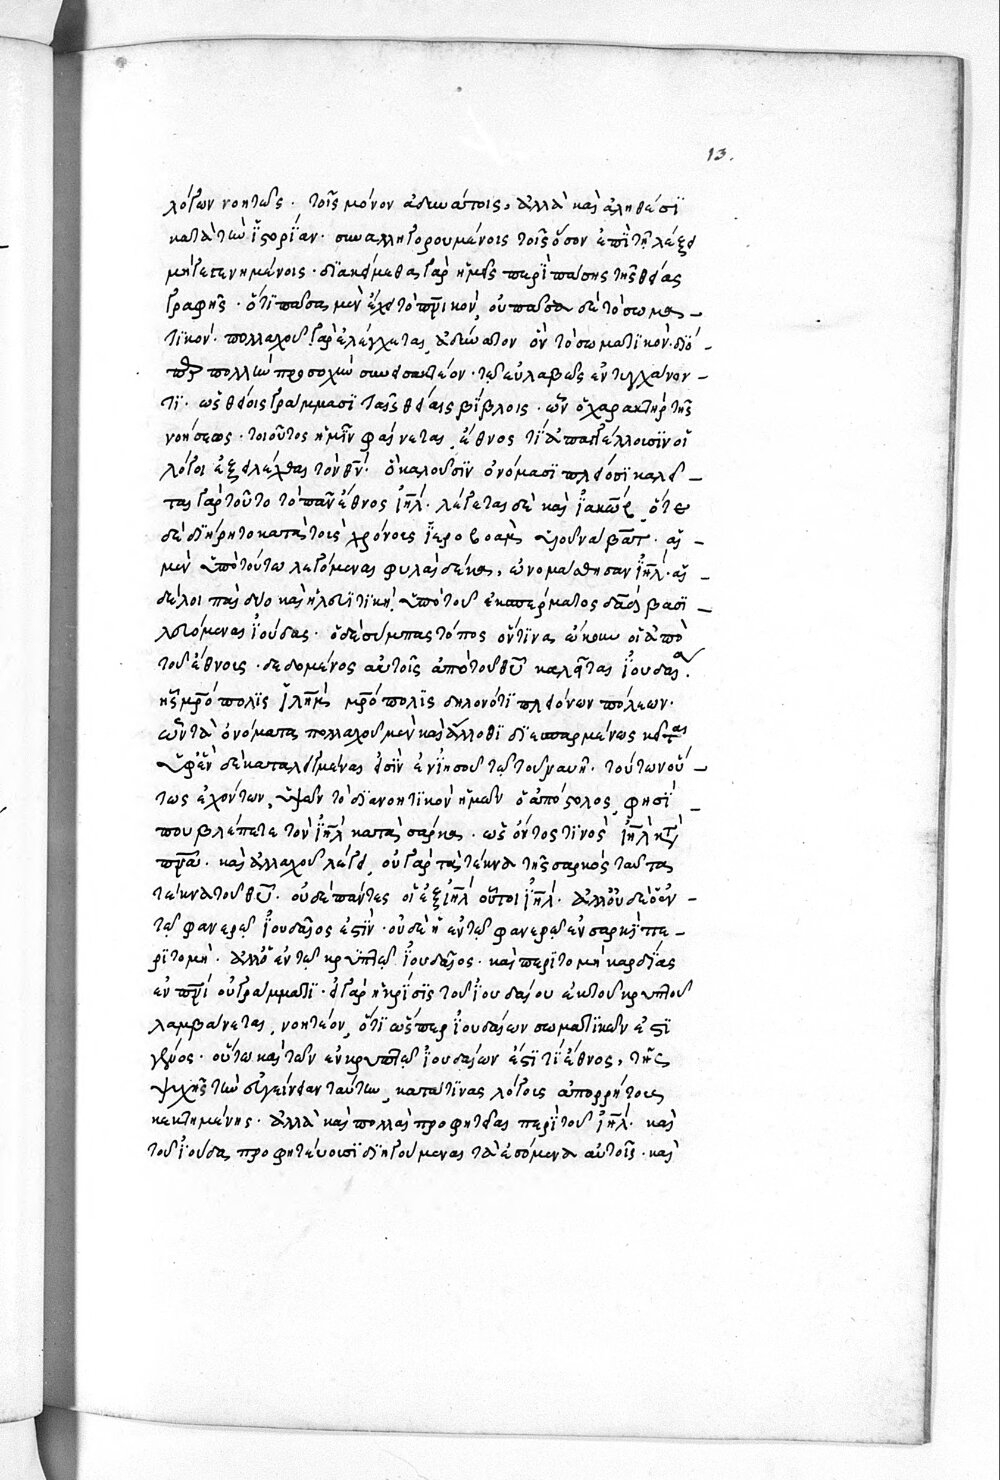 13.
λόγων νοητῶς· τοῖς μόνον ἀδυνάτοις, ἀλλὰ καὶ ἀληθέσϊ
κατὰ τὴν ἱ̈στορίαν· συναλληγορουμένοις τοῖς ὅσον ἐπὶ τῇ λέξει
μὴ γεγενημένοις· διακείμεθα γὰρ ἡμεῖς περὶ πάσης τῆς θείας
γραφῆς· ὅτι πᾶσα μὲν ἔχει τὸ πνικόν, οὐ πᾶσα δὲ τὸ σωμα-
τικόν· πολλαχοῦ γὰρ ἐλέγχεται ἀδύνατον ὂν τὸ σωματικόν· διό-
περ πολλὴν προσοχὴν συνεισακτέον· τῷ εὐλαβῶς ἐντυγχάνον-
τι· ὡς θείοις γράμμασι ταῖς θείαις βίβλοις· ὧν ὁ χαρακτὴρ τῆς
νοήσεως· τοιοῦτος ἡμῖν φαίνεται, ἔθνος τὶ ἀπαγγέλλουσιν οἱ
λόγοι ἐξειλέχθαι τὸν θν· ὃ καλοῦσιν ὀνόμασι πλείοσι καλεῖ-
ται γὰρ τοῦτο τὸ πᾶν ἔθνος ἰηλ· λέγεται δὲ καὶ ἰακώβ, ὅτε
δὲ διῄρητο κατὰ τοὺς χρόνους ἱεροβοὰμ υἱοῦ ναβάτ· αἱ-
μὲν ὑπὸ τούτω λεγόμεναι φυλαὶ δέκα, ὠνομάσθησαν ἰηλ· αἱ-
δὲ λοιπαὶ δύο καὶ ἡ λευϊτικὴ ὑπὸ τοῦ ἐκ σπέρματος δαδ βασι-
λευόμεναι ἰούδας· ὁ δὲ σύμπας τόπος ὅντινα ᾤκουν οἱ ἀπὸ
τοῦ ἔθνους· δεδομένος αὐτοῖς ἀπὸ τοῦ θυ καλεῖται ἰουδαία·
ἧς μρόπολις ἱλημ μρόπολις δηλονότι πλειόνων πόλεων·
ὧν τὰ ὀνόματα πολλαχοῦ μὲν καὶ ἄλλοθι διεσπαρμένως κεῖται
ὑφὲν δὲ καταλεγμέναι εἰσὶν ἐν ἰησοῦ τῷ τοῦ ναυῆ· τούτων οὕ-
τως ἐχόντων, ὑψῶν τὸ διανοητικὸν ἡμῶν ὁ ἀπόστολος, φησί-
που βλέπετε τὸν ἰηλ κατὰ σάρκα· ὡς ὄντος τινὸς ἰηλ κατὰ
πνα· καὶ ἀλλαχοῦ λέγει, οὐ γὰρ τὰ τέκνα τῆς σαρκὸς ταῦτα
τέκνα τοῦ θυ· οὐδὲ πάντες οἱ ἐξ ἰηλ οὗτοι ἰηλ· ἀλλ' οὐδὲ ὁ ἐν-
τῷ φανερῷ ἰουδαῖος ἐστὶν· οὐδὲ ἡ ἐν τῷ φανερῷ ἐν σαρκὶ πε-
ριτομὴ· ἀλλ' ὁ ἐν τῷ κρυπτῷ ἰουδαῖος· καὶ περιτομὴ καρδίας
ἐν πνι οὐ γράμματι· εἰ γὰρ ἡ κρίσις τοῦ ἰουδαίου ἐκ τοῦ κρυπτοῦ
λαμβάνεται, νοητέον, ὅτι ὥσπερ ἰουδαίων σωματικῶν ἐστι
γένος· οὕτω καὶ τῶν ἐν κρυπτῷ ἰουδαίων ἐστί τι ἔθνος, τῆς
ψυχῆς τὴν εὐγένειαν ταύτην, κατά τινας λόγους ἀπορρήτους
κεκτημένης· ἀλλὰ καὶ πολλαὶ προφητεῖαι περὶ τοῦ ἰηλ· καὶ
τοῦ ἰούδα προφητεύουσι διηγούμεναι τὰ ἐσόμενα αὐτοῖς· καὶ